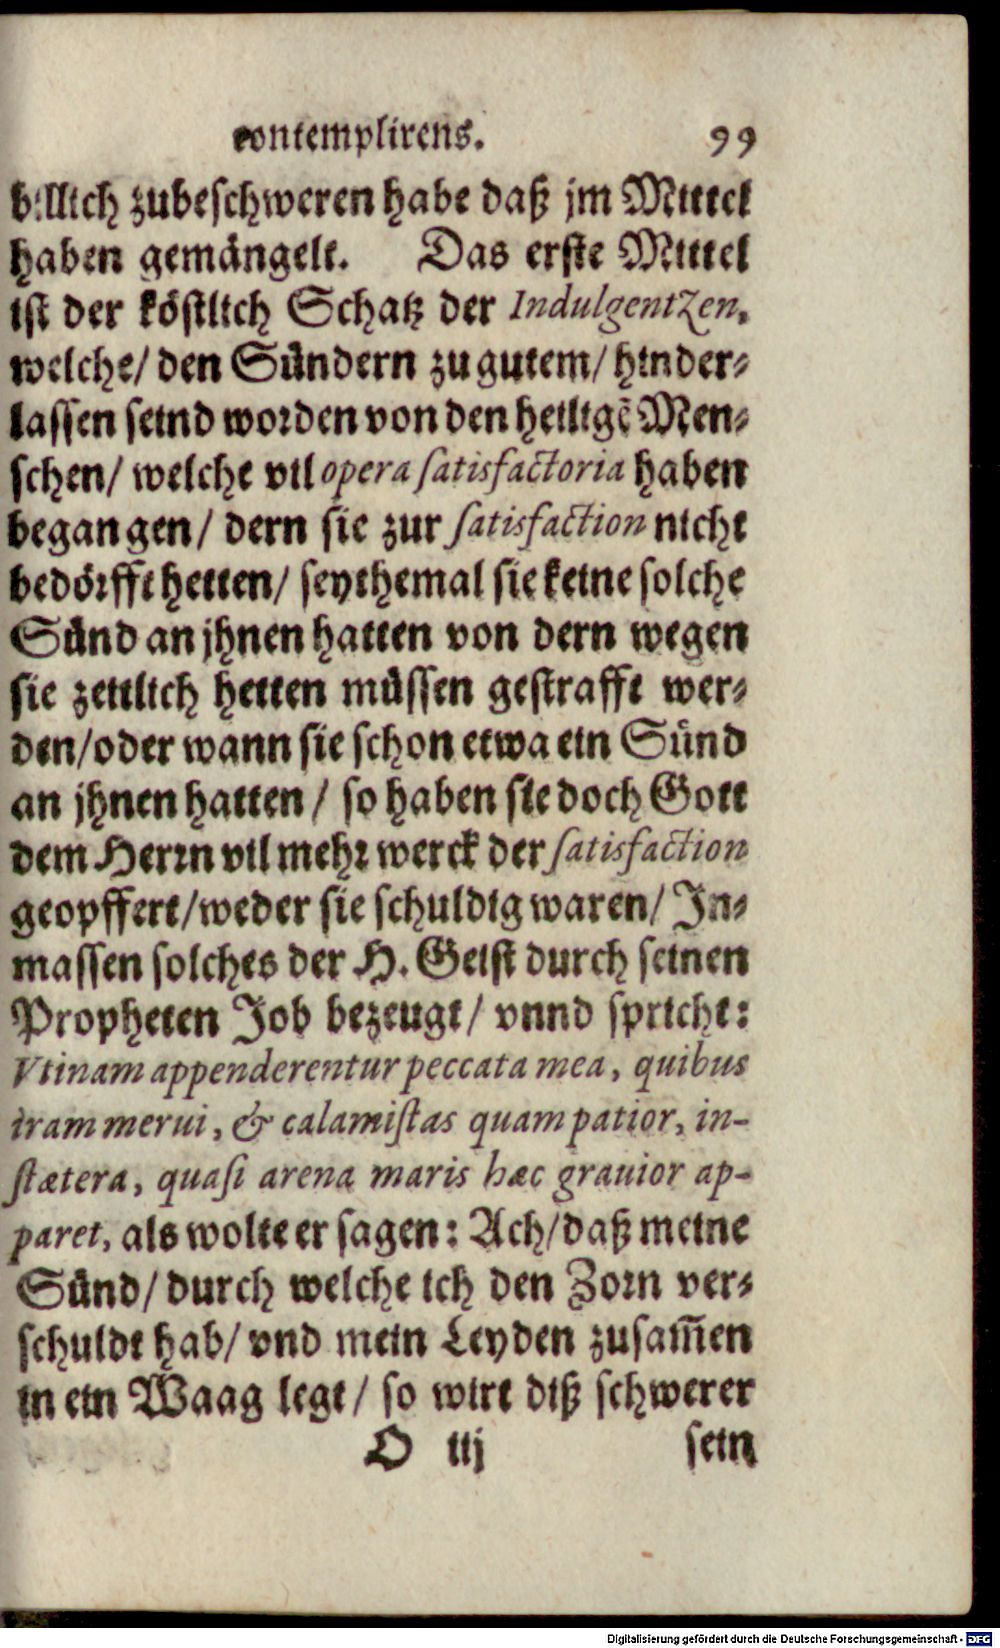 contemplirens. 99
billich zubeschweren habe daß jm Mittel
haben gemängelt. Das erste Mittel
ist der köstlich Schatz der Indulgentzen,
welche/ den Sündern zu gutem/ hinder⸗
lassen seind worden von den heiligẽ Men⸗
schen/ welche vil opera satisfactoria haben
begangen/ dern sie zur satisfaction nicht
bedörfft hetten/ seythemal sie keine solche
Sünd an jhnen hatten von dern wegen
sie zeitlich hetten müssen gestrafft wer⸗
den/ oder wann sie schon etwa ein Sünd
an jhnen hatten / so haben sie doch Gott
dem Herrn vil mehr werck der satisfaction
geopffert/ weder sie schuldig waren/ In⸗
massen solches der H. Geist durch seinen
Propheten Job bezeugt/ vnnd spricht:
Vtinam appenderentur peccata mea, quibus
iram merui, & calamistas quam patior, in-
stætera, quasi arena maris hæc grauior ap-
paret, als wolte er sagen: Ach/ daß meine
Sünd/ durch welche ich den Zorn ver⸗
schuldt hab/ vnd mein Leyden zusam̃en
in ein Waag legt/ so wirt diß schwerer
O iij sein
Digitalisierung gefördert durch die Deutsche Forschungsgemeinschaft - DFG